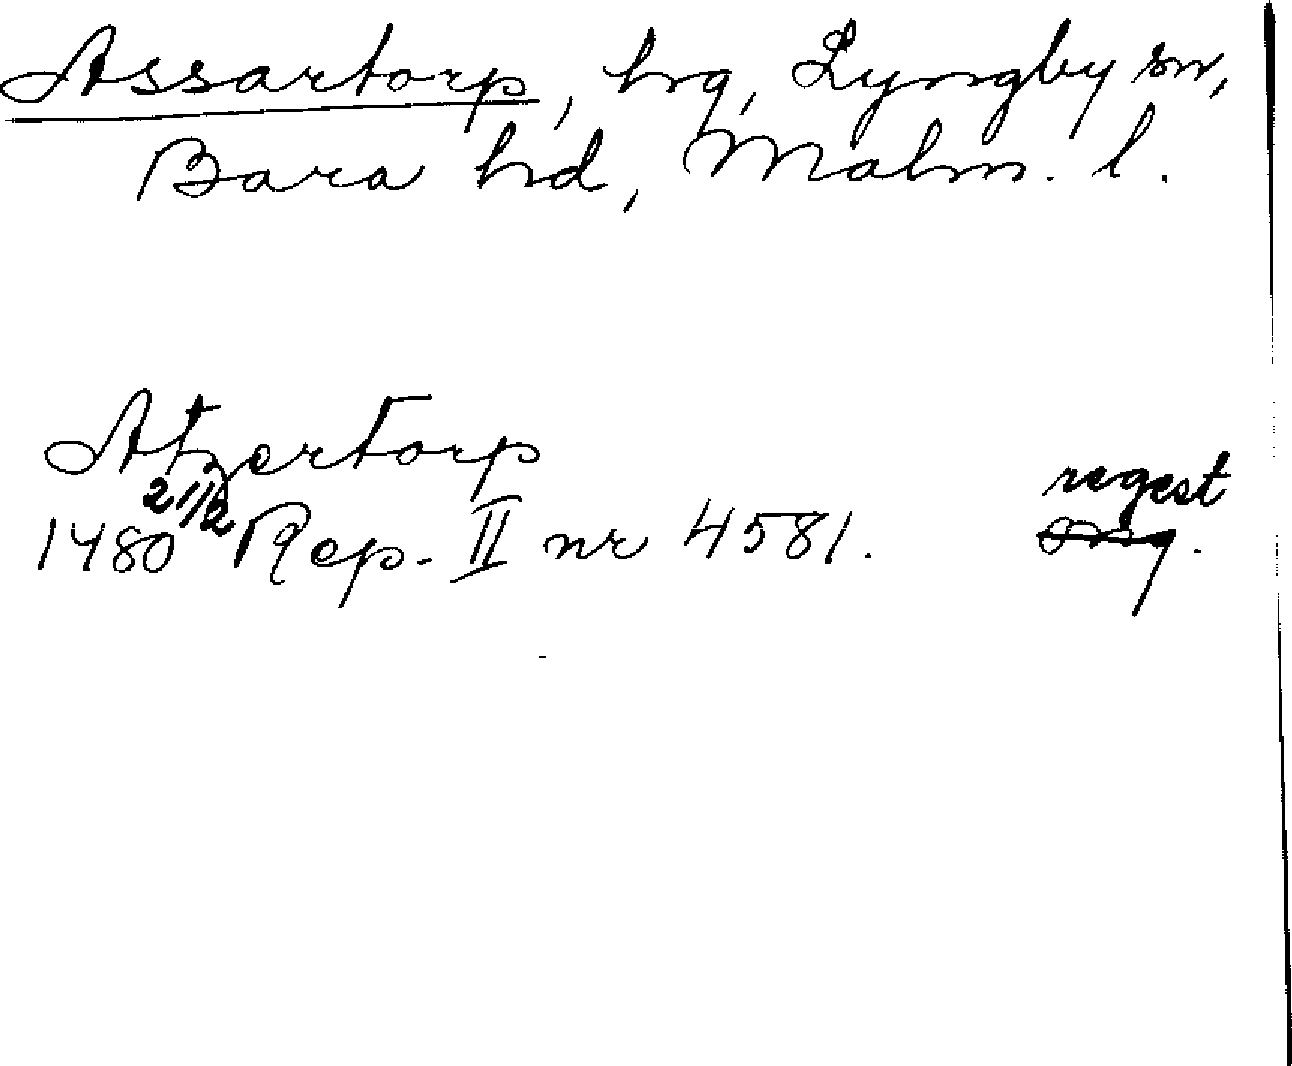 Assartorp, hrg, Lyngby sn,
Bara hd, Malm. l.
Atzertorp
regest
1480 21/2 Rep. II nr 4581.